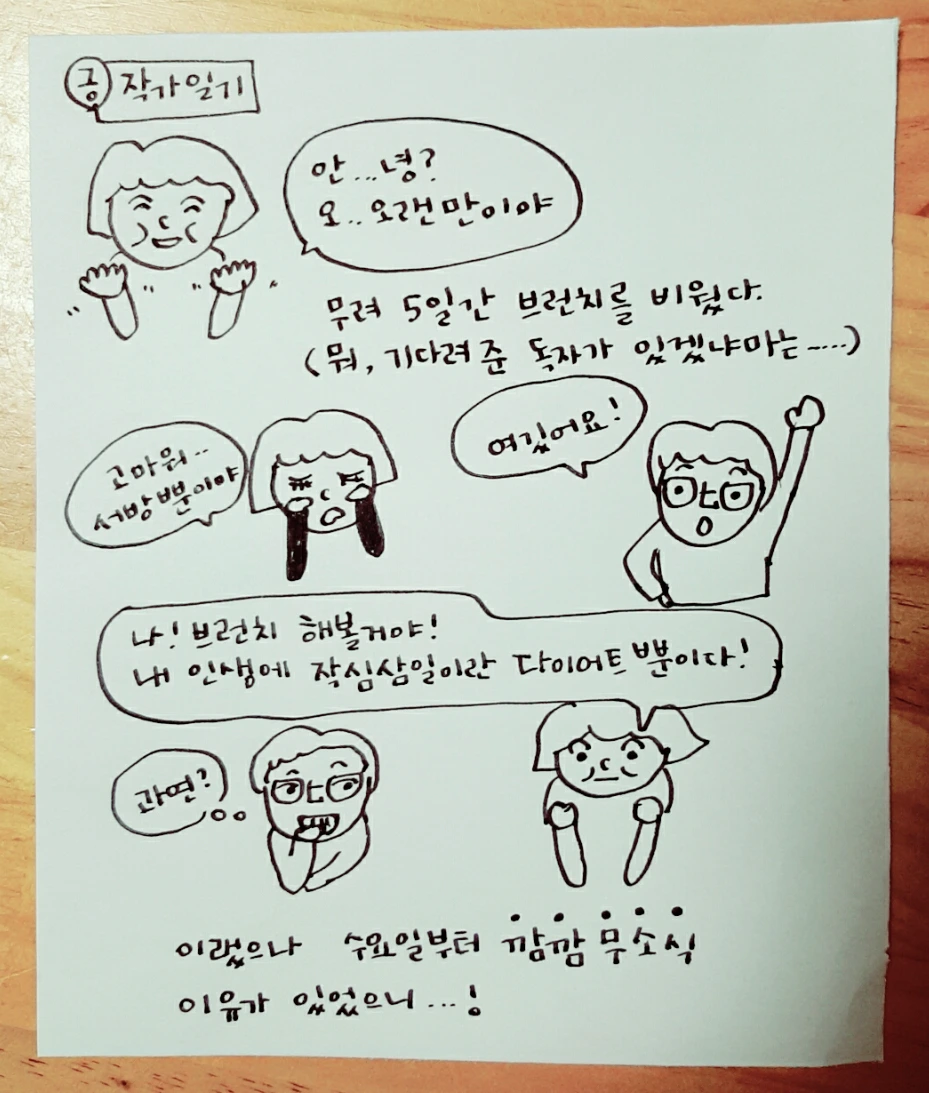 공 작가일기
안...녕?
오..오랜만이야
무려 5일간 브런치를 비웠다.
(뭐, 기다려준 독자가 있겠냐마는~...)
여깄어요!
고마워..
서방뿐이야
나! 브런치 해볼거야!
내 인생에 작심삼일이란 다이어트뿐이다!
과연?
이랬으나 수요일부터 깜깜무소식
이유가 있었으니...!